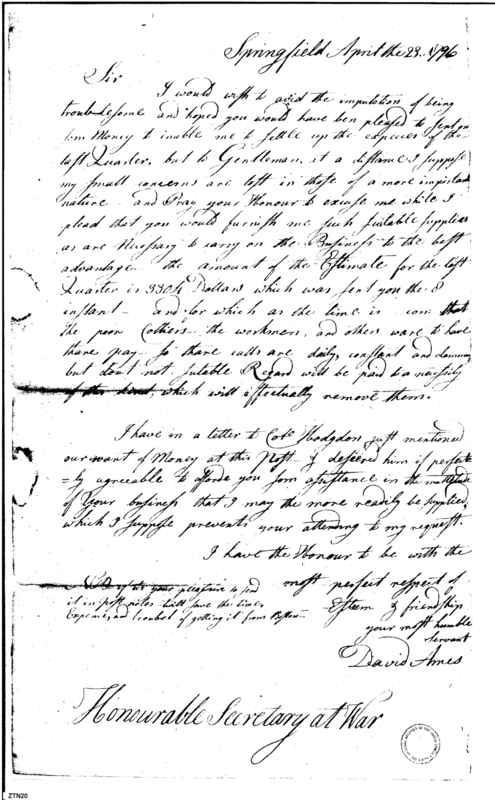 Springfield April the 23. 1796
Sir
I would wish to avid the imputation of being
troub-lesome and hoped you would have ben pleased to sent on
som Money to inable me to settle up the expences of the
last Quarter. but to Gentleman, at a distance I suppose
my small concerns are lost in those of a more important
nature and Pray your Honour to excuse me while I
plead that you would furnish me such suitable supplies
as are Necessary to carry on the Business to the best
advantage the amount of the Estimate for the last
Quarter is 3304 Dollars which was sent you the 8
instant and for which as the time is com that
the poor Colliers the workmen, and others ware to have
thare pay. so thare calls are daily, constant and
but dout not, sutable Regard will be paid to a necessity
of this kind, which will effectually remove them.
I have in a letter to Colo. Hodgdon just mentioned
our want of Money at this Post & desiered him if perfect
=ly agreable to afforde you som assistance in the
of Your business that I may the more readily be supplied,
which I suppose prevents your attending to my request.
I have the Honour to be with the
most perfect respect of
Esteem & friendship
your most humble
servant
David Ames
NB if tis your pleasure to send
it in post notes will save the time,
Expence, and troubel of getting it from Boston
Honourable Secretary at War
ZTN20